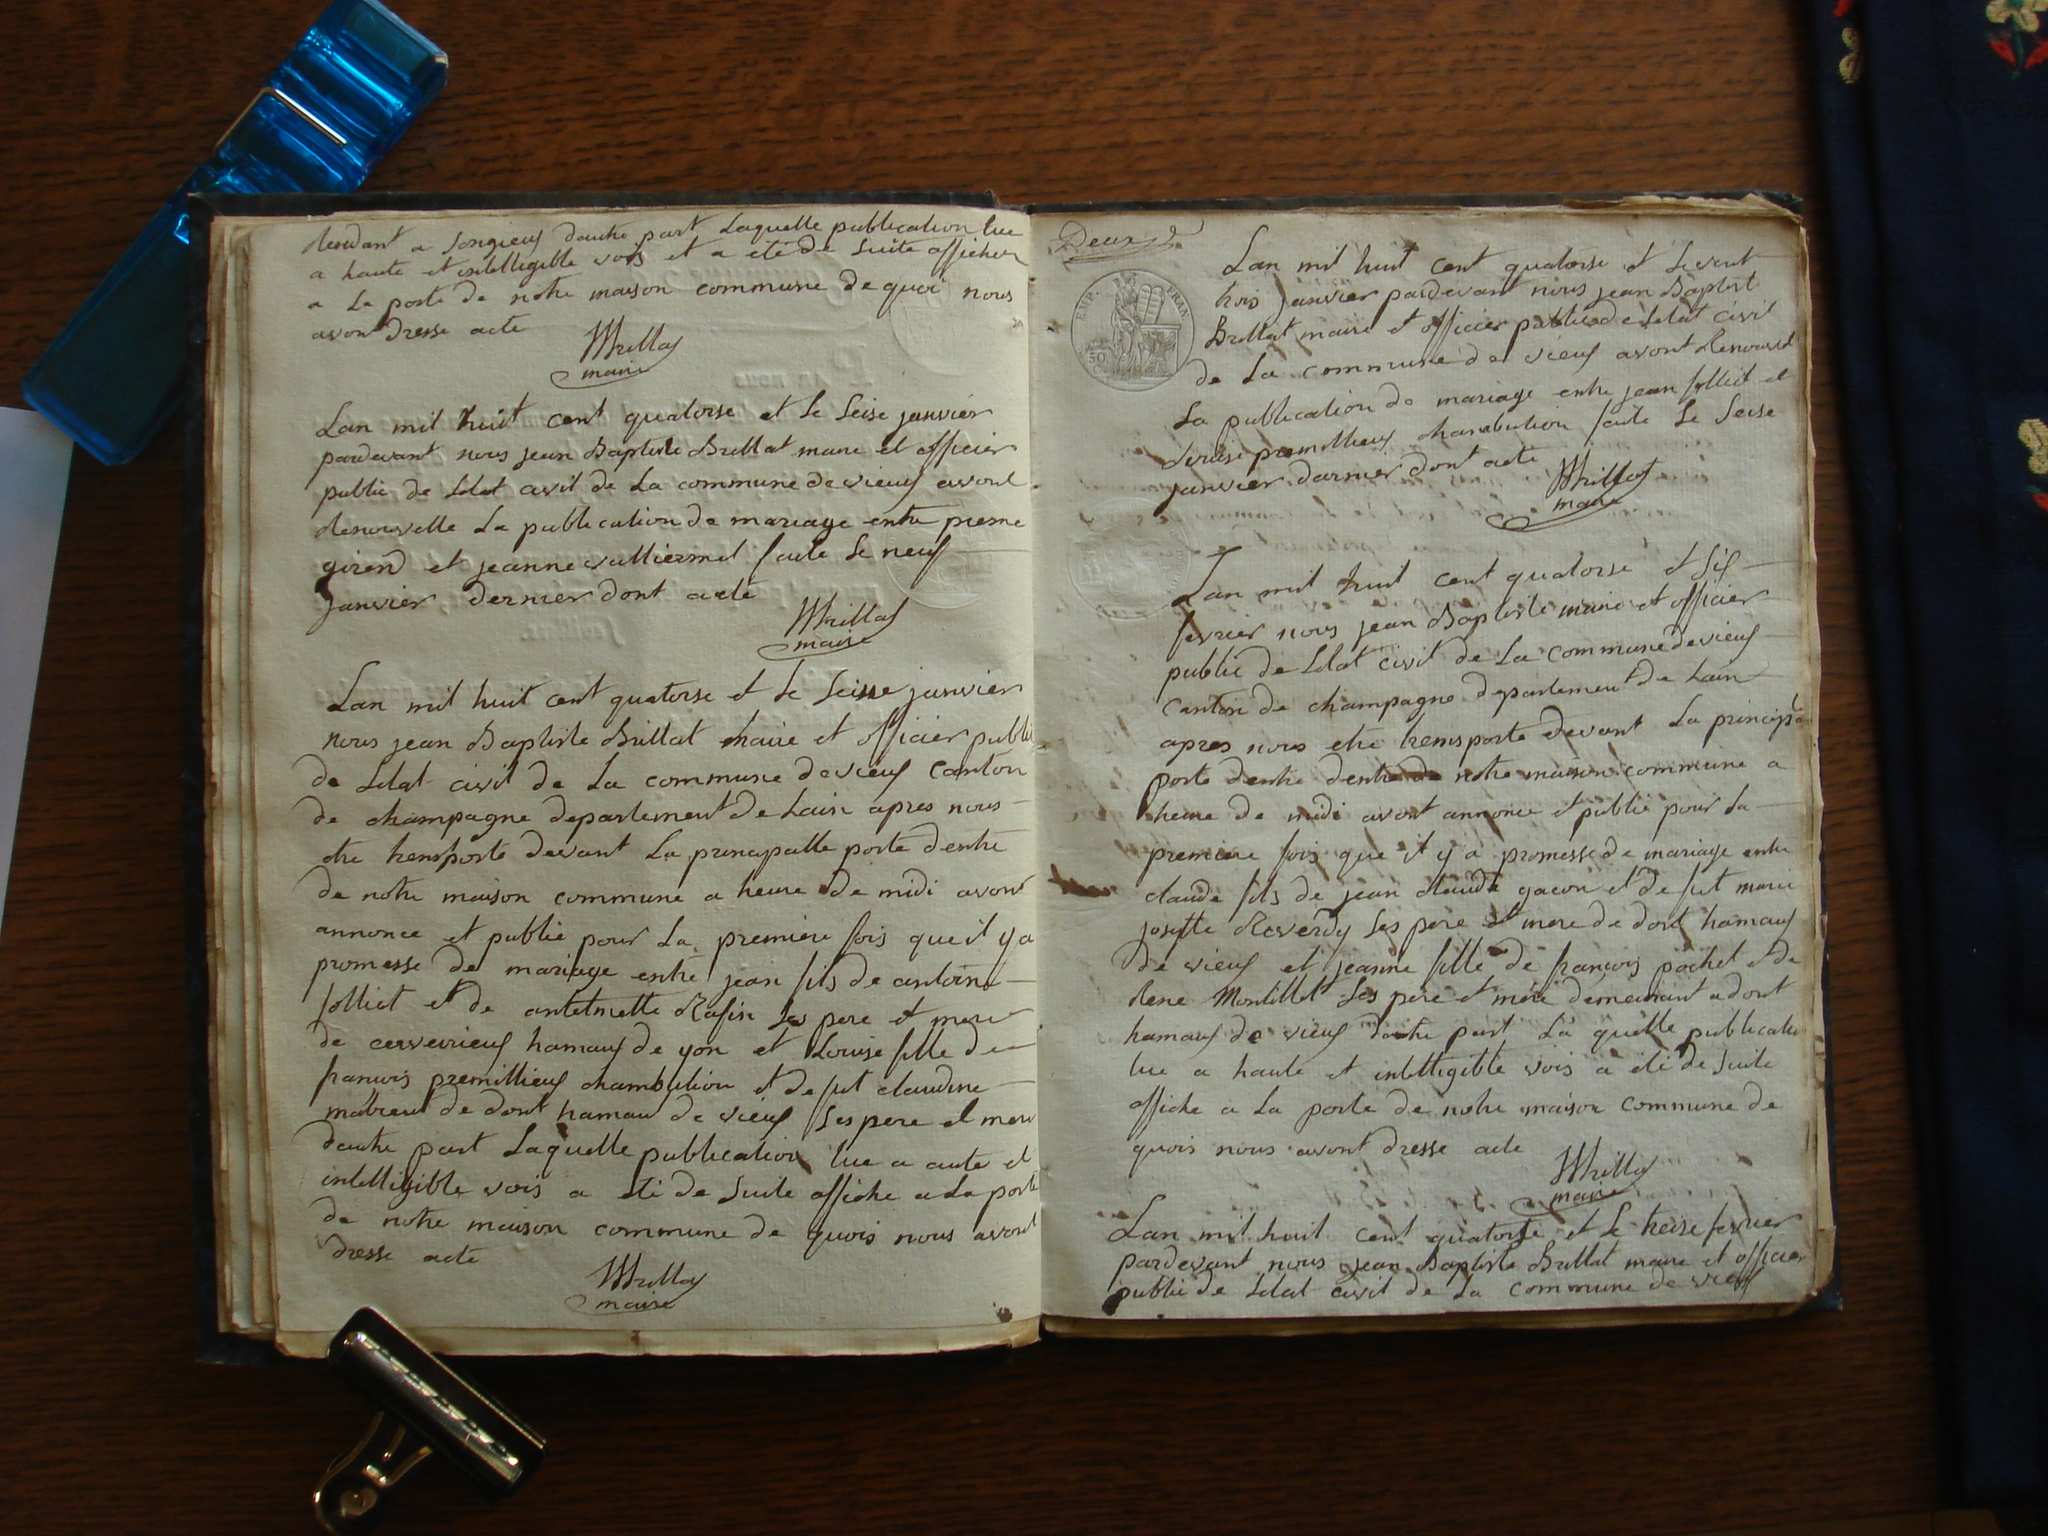 dauthe part Laquelle publication lue
a haute et intelligible vois et a ete de suite afficher
a la porte de nothe maison commune de quoi nous
avont dresse acte
Brillat
maire
Lan mil huit cent quatorse et le seise janvier
pardevant nous jean Baptiste Brillat maire et officier
public de letat civil de la commune de vieux avont
Renouvelle La publication de mariage entre pierre
et jeanne faite le neuf
janvier dernier dont acte
Brillat
maire
Lan mil huit cent quatorse et le seisse janvier
nous jean Baptiste Brillat maire et officier public
de letat civil de la commune de vieux canton
de champagne departement de Lain apres nous
etre hensporte devant la principalle porte denthe
de nothe maison commune a heure de midi avont
annonce et publie pour La premiere fois que il y a
promesse de mariage entre jean fils de antoine
folliet et de les pere et mere
de hamaux de yon et Louise fille de
francois premillieux chambution et de fut claudine
de dont hamau de vieux ses pere et mere
dauthe part Laquelle publication lue a aute et
intelligible vois a ete de suite affiche a la porte
de nothe maison commune de quois nous avont
dresse acte
Brillat
maire
Deux
EMP. FRAN
50
Lan mil huit cent quatorse et le vent
hois janvier pardevant nous jean Baptist
Brillat maire et officier public de letat civil
de la commune de vieux avont Renouvel
La publication de mariage entre jean folliet et
Louise premillieux chambution faite le seise
janvier darnier dont acte
Brillat
maire
Lan mil huit cent quatorse et six
fevrier nous jean Baptiste maire et officier
public de letat civil de la commune de vieux
canton de champagne departement de Lain
apres nous etre hensporte devant La principa
porte denthe denthe de nothe maison commune a
heure de midi avont annonce et publie pour La
premiere fois que il y a promesse de mariage entre
claude fils de jean claude gacon et de fut marie
josette Reverdy ses pere et mere de dont hamaux
de vieux et jeanne fille de francois pochet et de
Rene Montillet ses pere et mere demeurant a dont
hamaux de vieux dauthe part La quelle publication
lue a haute et intelligible vois a ete de suite
affiche a La porte de nothe maison commune de
quois nous avont dresse acte
Brillat
maire
Lan mil huit cent quatorse et le treise fevrier
pardevant nous jean Baptiste Brillat maire et officier
public de letat civil de la commune de vieux